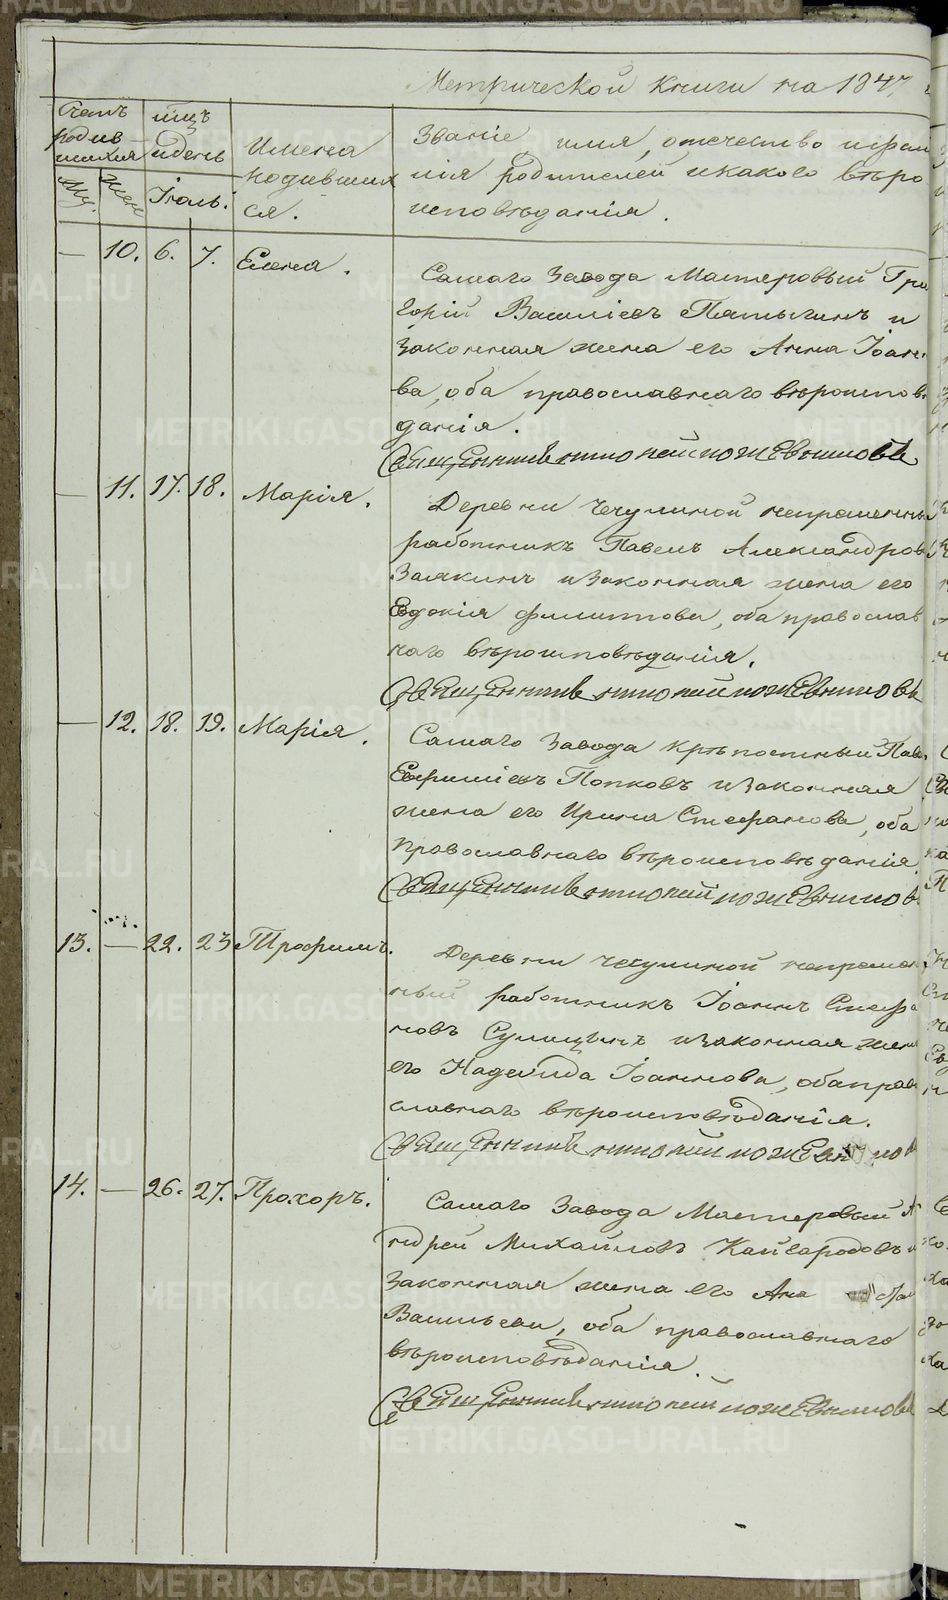 Метрической книги на 1847
Счетъ родив шихся
Мѣсяцъ и день
Имена родившихся.
Званіе, имя, отчество и фами
лія родителей и какого вѣро
исповѣданія.
Му. Жен Іюль.
— 10. 6. 7. Елена.
Самаго Завода Мастеровый Гри
горій Василіевъ Пятыгинъ и
Законная жена его Анна Іоанно
ва, оба православнаго вѣроисповѣ
данія.
— 11. 17. 18. Марія.
Деревни Чечулиной непременны
работникъ Павелъ Александров
Залякинъ и Законная жена его
Евдокія Филиппова, оба православ
наго вѣроисповѣданія.
— 12. 18. 19. Марія.
Самаго Завода крѣпостный Паве
Евфиміевъ Попковъ и Законная
жена его Ирина Стефанова, оба
Православнаго вѣроисповѣданія.
13. — 22. 23 Трофимъ.
Деревни Чечулиной непремен
ный работникъ Іоаннъ Стефа
новъ Сулицынъ и Законная жена
его Надежда Іоаннова, оба прав
славнаго вѣроисповѣданія.
14. — 26. 27. Прохоръ.
Самаго Завода Мастеровый А
ндрей Михайловъ Кайгародовъ и
Законная жена его
Васильева, оба православнаго
вѣроисповѣданія.
METRIKI.GASO-URAL.RU